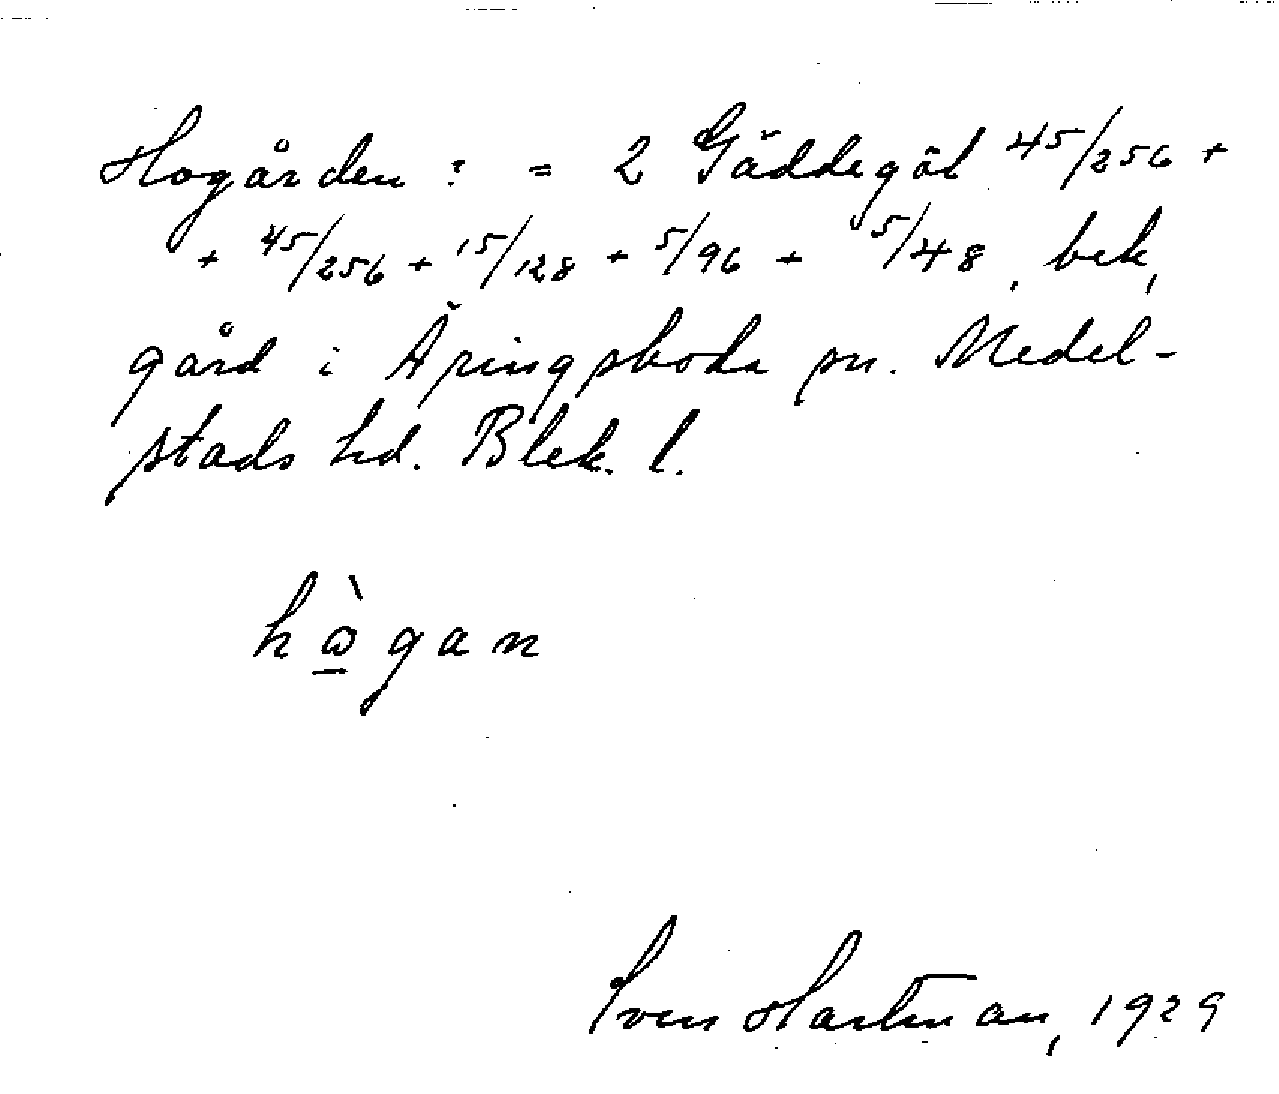 Hogården : = 2 Gäddegöl 45/256 +
+ 45/256 + 15/128 + 5/96 + 5/48, bek,
gård i Äspingsboda sn. Medel-
stads hd. Blek. l.
hògan
Sven Hartman, 1929